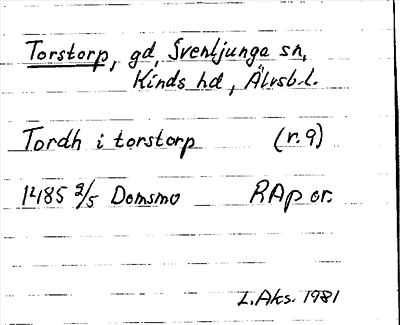 Torstorp, gd, Svenljunga sn,
Kinds hd, Älvsb.l.
Tordh i torstorp (r. 9)
1485 2/5 Domsmo RAp or.
L. Aks. 1981